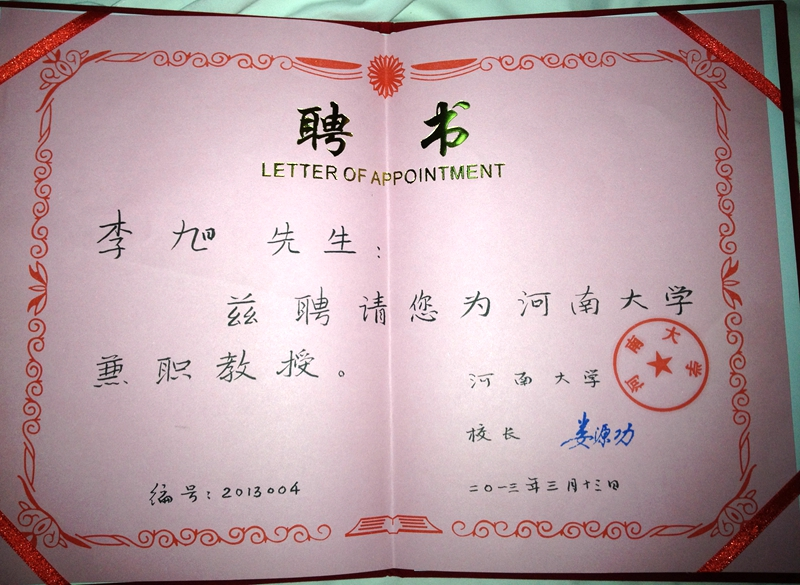 聘书
LETTER OF APPOINTMENT
李旭先生：
兹聘请您为河南大学
兼职教授。
河南大学
河南大学
校长 娄源功
编号：2013004
二〇一三年三月十三日